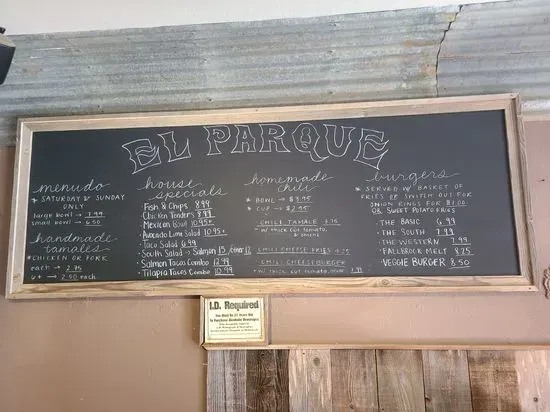 EL PARQUE
menudo
* SATURDAY & SUNDAY
ONLY
large bowl → 7.99
small bowl → 6.50
handmade
tamales
* CHICKEN OR PORK
each → 2.75
6+ → 2.50 each
house
specials
• Fish & Chips 8.99
• Chicken Tenders 8.99
• Mexican Bowl 10.95+
• Avocado Lime Salad 10.95+
• Taco Salad 6.99
• South Salad → Salmon 15
• Salmon Tacos Combo 12.99
• Tilapia Tacos Combo 10.99
homemade
chili
* BOWL → $3.95
* CUP → $2.95
CHILI TAMALE 4.75
* w/ thick cut tomato,
& onions
CHILI CHEESE FRIES 4.75
CHILI CHEESEBURGER
* w/ thick cut tomato, onion 7.99
burgers
* SERVED w/ BASKET OF
FRIES OR SWITCH OUT FOR
ONION RINGS FOR $1.00
OR SWEET POTATO FRIES
• THE BASIC 6.99
• THE SOUTH 7.99
• THE WESTERN 7.99
• FALLBROOK MELT 8.25
• VEGGIE BURGER 8.50
I.D. Required
You Must Be 21 Years Old
To Purchase Alcoholic Beverages